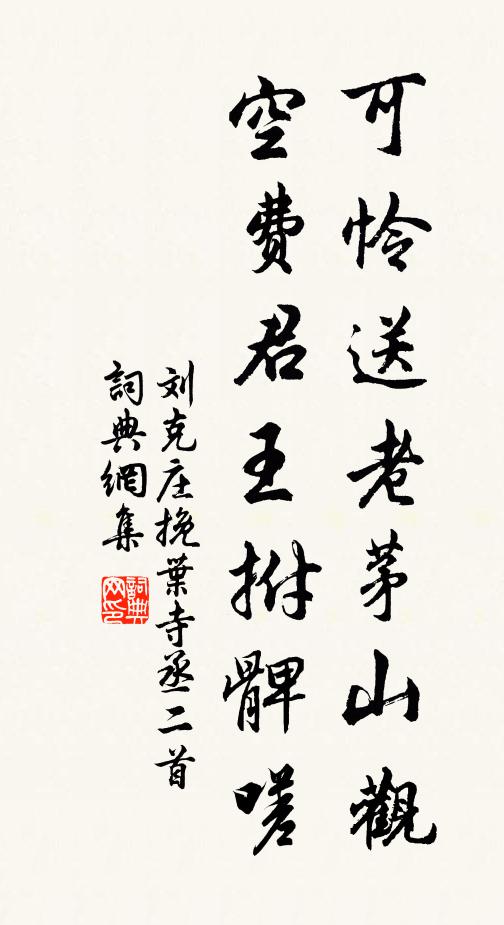 可憐送老茅山觀
空費君王拊髀嗟
刘克庄挽葉寺丞二首
詞典網集
詞典網印